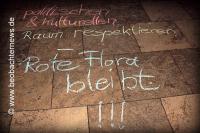 politischen
& kulturellen
Raum respektieren
–
Rote Flora
bleibt
!!!
© www.beobachternews.de